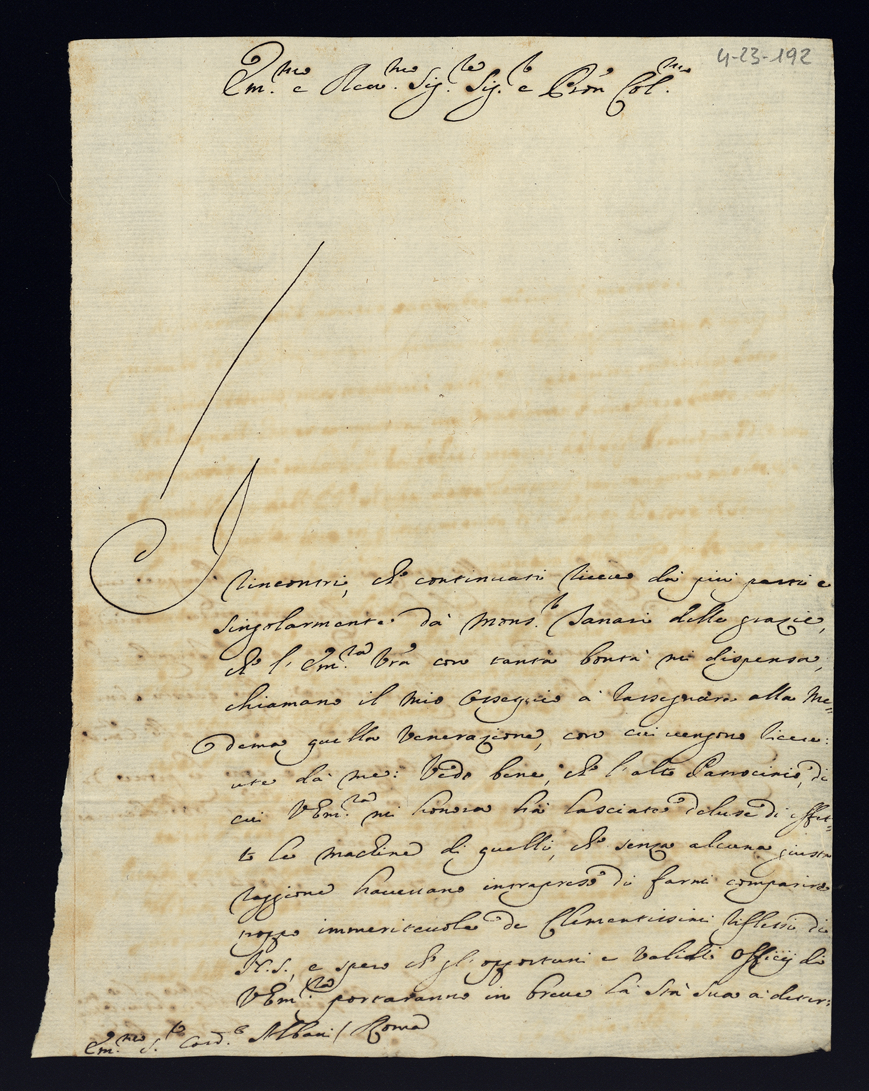 4-23-192
Em.mo e Rev.mo Sig.re Sig.r e Pron Col.mo
I rincontri, che continuati ricevo da più parti e
singolarmente da Mons.r Sanari delle grazie,
che l'Em.za Vra con tanta bontà mi dispensa,
chiamano il mio ossequio à rassegnare alla Me=
dema quella venerazione, con cui vengono rice=
vute da me: Vedo bene, che l'alto Patrocinio, di
cui VEm.za mi honora hà lasciate deluse di effet=
to le machine di quelli, che senza alcuna giusta
raggione havevano intrapreso di farmi comparire
troppo immeritevole de Clementissimi riflessi di
N.S., e spero che gl'opportuni e validi officij di
VEm.za portaranno in breve la Stà Sua à deter=
Em.mo S.r Card.e Albani / Roma